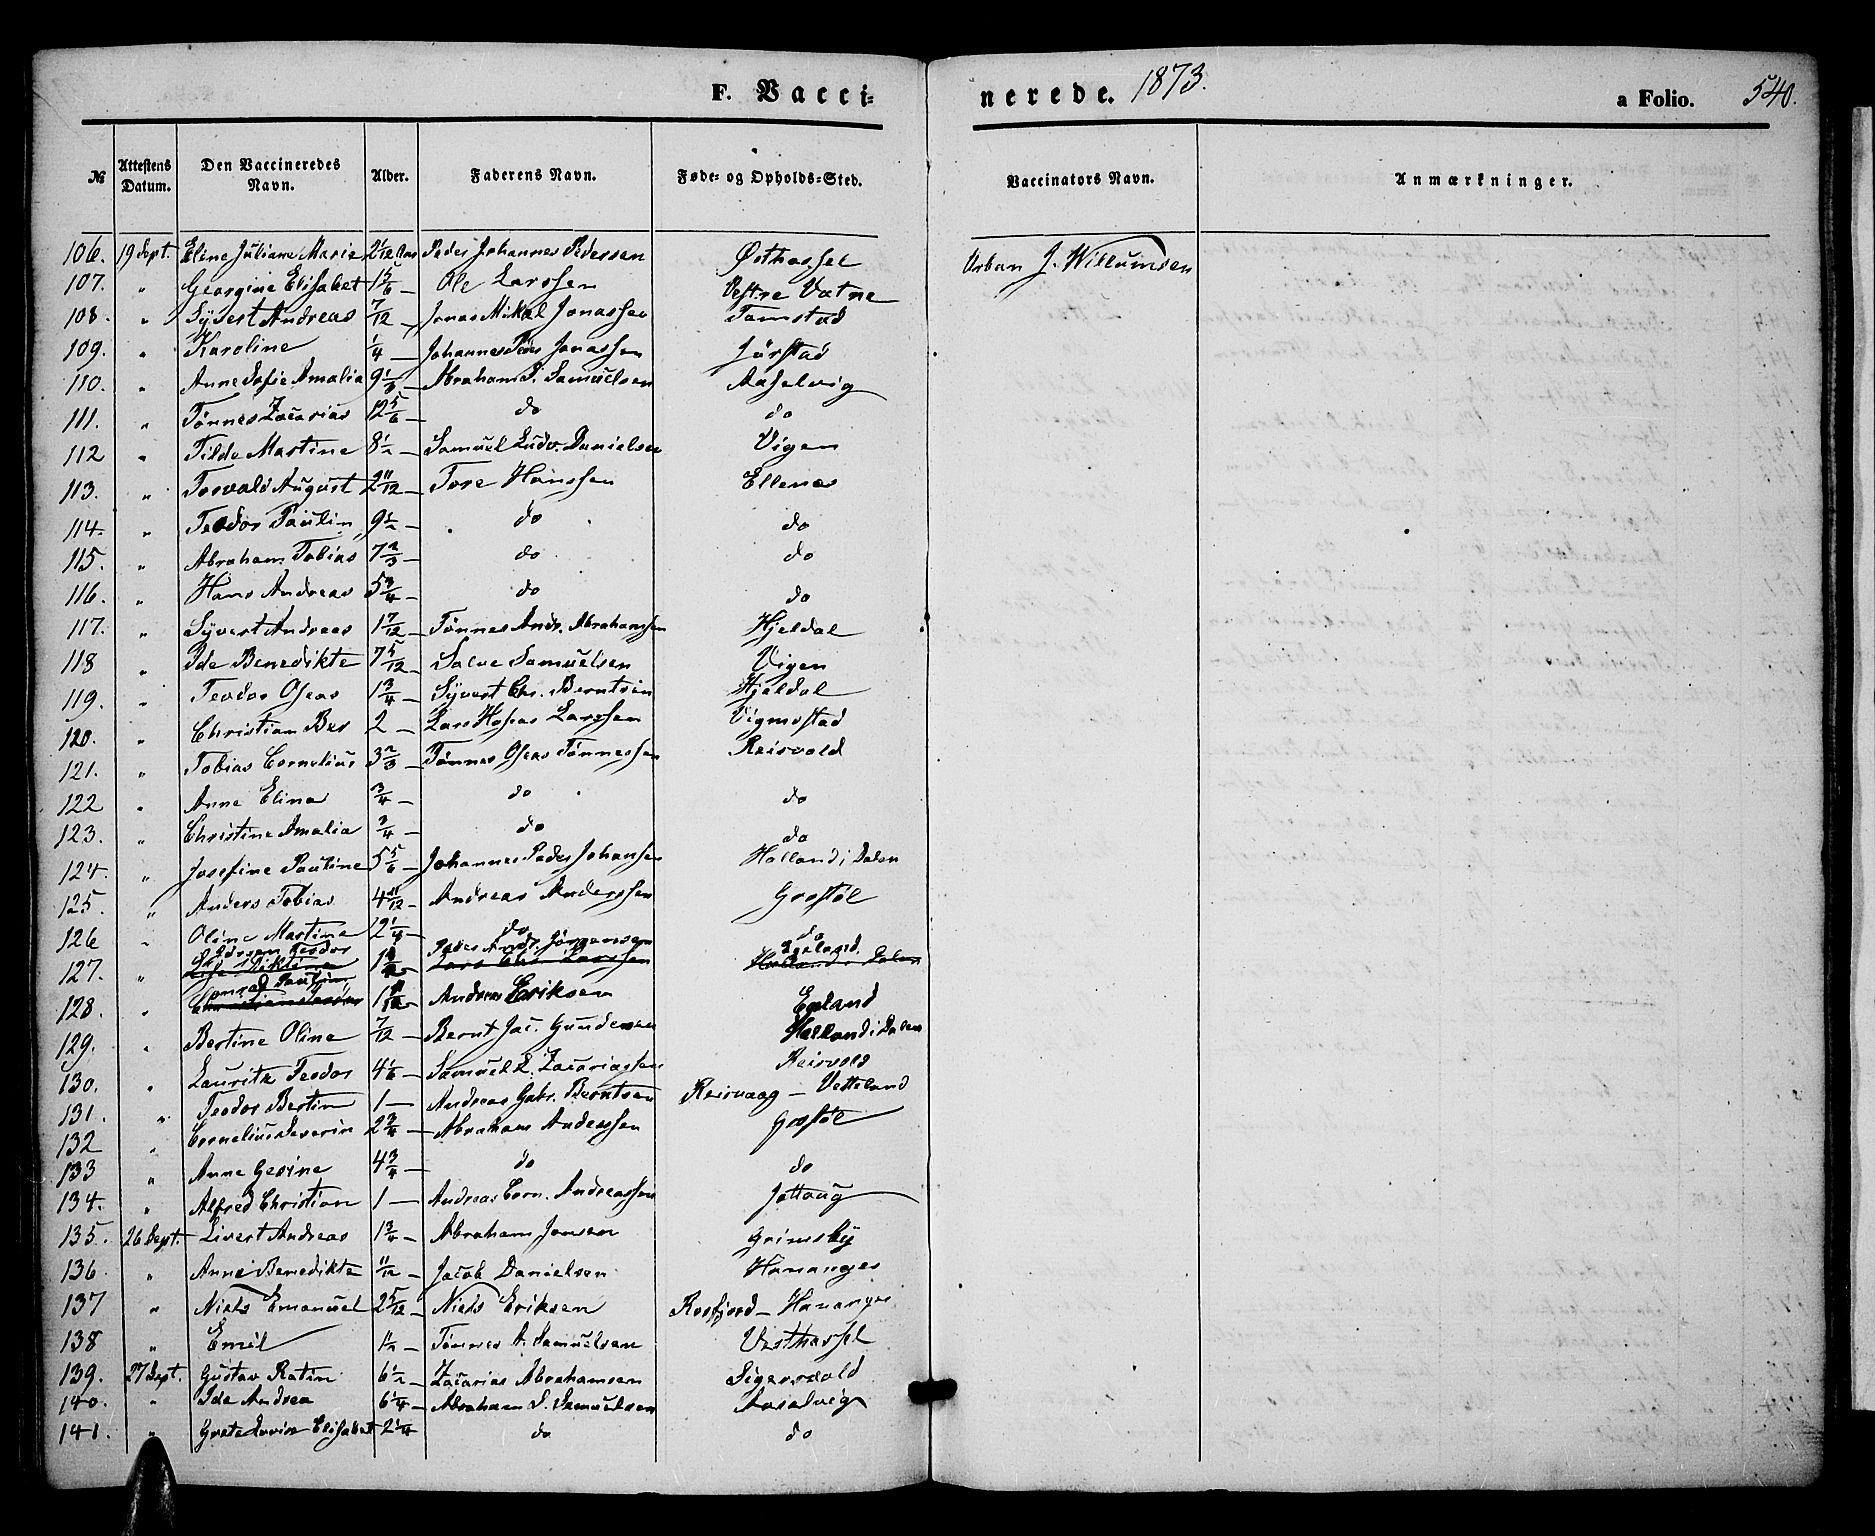 F. Vacci- nerede. 1873. a Folio. 540.
№ Attestens Datum. Den Vaccineredes Navn. Alder. Faderens Navn. Føde- og Opholds-Sted. Vaccinators Navn. Anmærkninger.
106. 19 Sept. Eline Juliane Marie 2 1/12 Peder Johannes Pedersen Østhassel Urban J. Willumsen
107. " Georgine Elisabet 1 5/6 — Ole Larssen Vestre Vatne
108. " Syvert Andreas 7/12 — Jonas Mikal Jonassen Tomstad
109. " Karoline 1/4 — Johannes Peder Jonassen Jørstad
110. " Anne Sofie Amalia 9 1/3 — Abraham S. Samuelsen Aaselvig
111. " Tønnes Zacarias 12 5/6 — do do
112 " Tilde Martine 8 1/2 — Samuel Ludv. Danielsen Vigen
113. " Torvald August 2 11/12 — Tore Hanssen Ellenes
114. " Teodor Paulin 9 1/2 — do do
115. " Abraham Tobias 7 2/3 — do do
116. " Hans Andreas 5 3/4 — do do
117. " Syvert Andreas 1 7/12 — Tønnes Andr. Abrahamsen Hjeldal
118 " Ide Benedikte 7 5/12 — Salve Samuelsen Vigen
119. " Teodor Oseas 1 3/4 — Syvert Chr. Berntsen Hjeldal
120. " Christian Ber 2 — Lars Hoseas Larssen Vigmostad
121. " Tobias Cornelius 3 2/3 — Tønnes Oseas Tønnessen Reisvold
122 " Anne Elina 3/4 — do do
123. " Christine Amalia 3/4 — do do
124. " Josefine Pauline 5 5/6 — Johannes Peder Johansen Holland i Dalen
125. " Anders Tobias 4 11/12 — Andreas Anderssen Grostøl
126 " Oline Martine 2 1/4 — do do
127. " Teodor Peder Andr. Jørgensen Egeland Lars Chr. Larssen Holland i Dalen
128. " Conrad Paulin Andreas Eriksen Egland
129. " Bertine Oline 7/12 — Bernt Jac. Gundersen Holland i Dalen
130. " Lauritz Teodor 4 1/6 — Samuel L. Zacariassen Reisvold
131. " Teodor Bertin 1 — Andreas Gabr. Berntsen Reisvaag — Vetteland
132 " Cornelius Severin 2 3/4 — Abraham Anderssen Grostøl
133 " Anne Gesine 4 3/4 — do do
134. " Alfred Christian 1 — Andreas Corn. Andreassen Jottaug
135. 26 Sept. Sivert Andreas 1 3/4 — Abraham Jonsen Grimsby
136. " Anne Benedikte 11/12 — Jacob Danielsen Hananger
137 " Niels Emanuel 2 5/12 — Niels Eriksen Rosfjord — Hananger
138 " Emil 1 1/2 — Tønnes A. Samuelsen Vesthassel
139. 27 Sept. Gustav Ratin 6 1/2 — Zacarias Abrahamsen Sigersvold
140. " Ide Andrea 6 1/4 — Abraham S. Samuelsen Aaselvig
141. " Grete Lovise Elisabet 2 1/4 do do